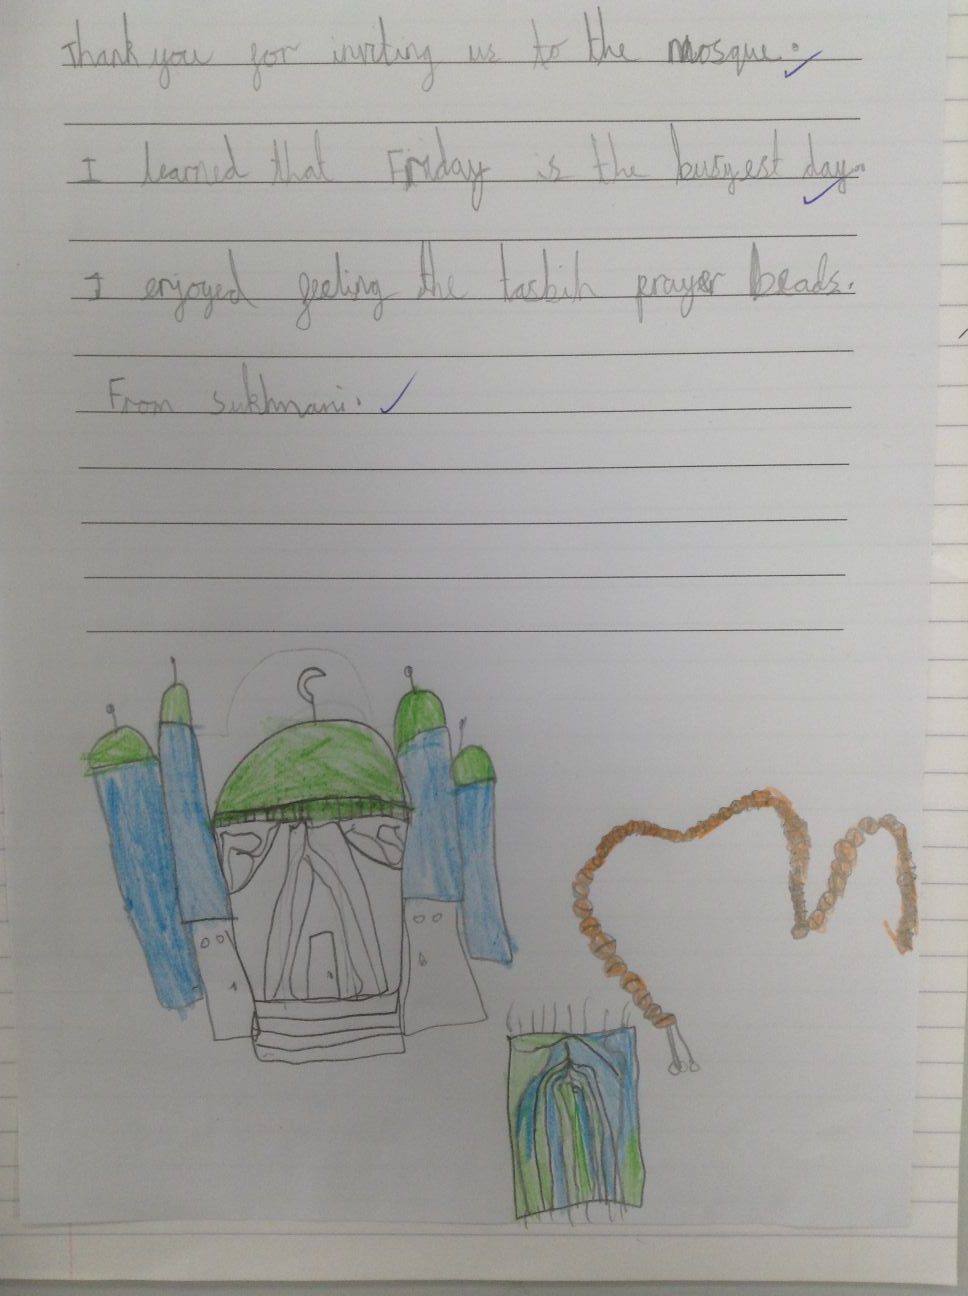 Thank you for inviting us to the mosque.
I learned that Friday is the busyest day.
I enjoyed feeling the tasbih prayer beads.
From sukhmani.